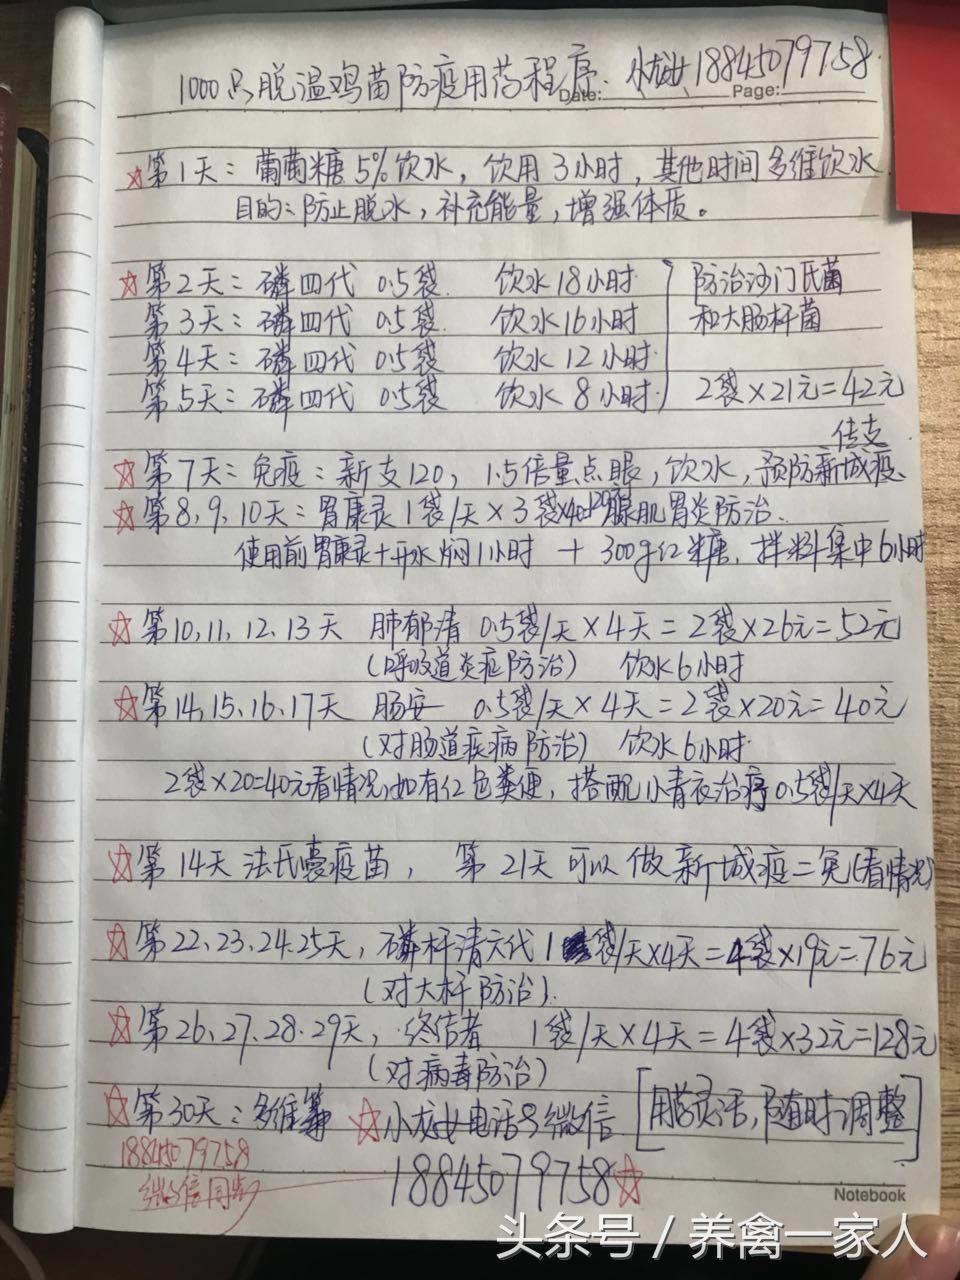 1000只脱温鸡苗防疫用药程序. 小龙女18845079758
Date: Page:
☆第1天：葡萄糖5%饮水，饮用3小时，其他时间多维饮水
目的：防止脱水，补充能量，增强体质。
☆第2天：磷四代 0.5袋 饮水18小时 防治沙门氏菌
第3天：磷四代 0.5袋 饮水16小时 和大肠杆菌
第4天：磷四代 0.5袋 饮水12小时
第5天：磷四代 0.5袋 饮水8小时 2袋×21元=42元
传支
☆第7天：免疫：新支120，1.5倍量点眼，饮水，预防新城疫、
☆第8,9,10天：胃康灵1袋/天×3袋×40=120腺肌胃炎防治.
使用前胃康灵+开水焖1小时 + 300g红糖，拌料集中6小时
☆第10,11,12,13天 肺郁清 0.5袋/天×4天=2袋×26元=52元
(呼吸道炎症防治) 饮水6小时
☆第14,15,16,17天 肠安 0.5袋/天×4天=2袋×20元=40元
(对肠道疾病防治) 饮水6小时
2袋×20=40元看情况,如有红色粪便，搭配小青衣治疗0.5袋/天×4天
☆第14天法氏囊疫苗，第21天可以做新城疫二免(看情况)
☆第22、23、24.25天，磷杆清六代1袋/天×4天=4袋×19元=76元
(对大杆防治).
☆第26、27、28.29天，终结者 1袋/天×4天=4袋×32元=128元
(对病毒防治)
☆第30天：多维 ☆小龙女电话与微信 [用药灵活，随时调整]
18845079758
微信同步
18845079758☆
Notebook
头条号 / 养禽一家人